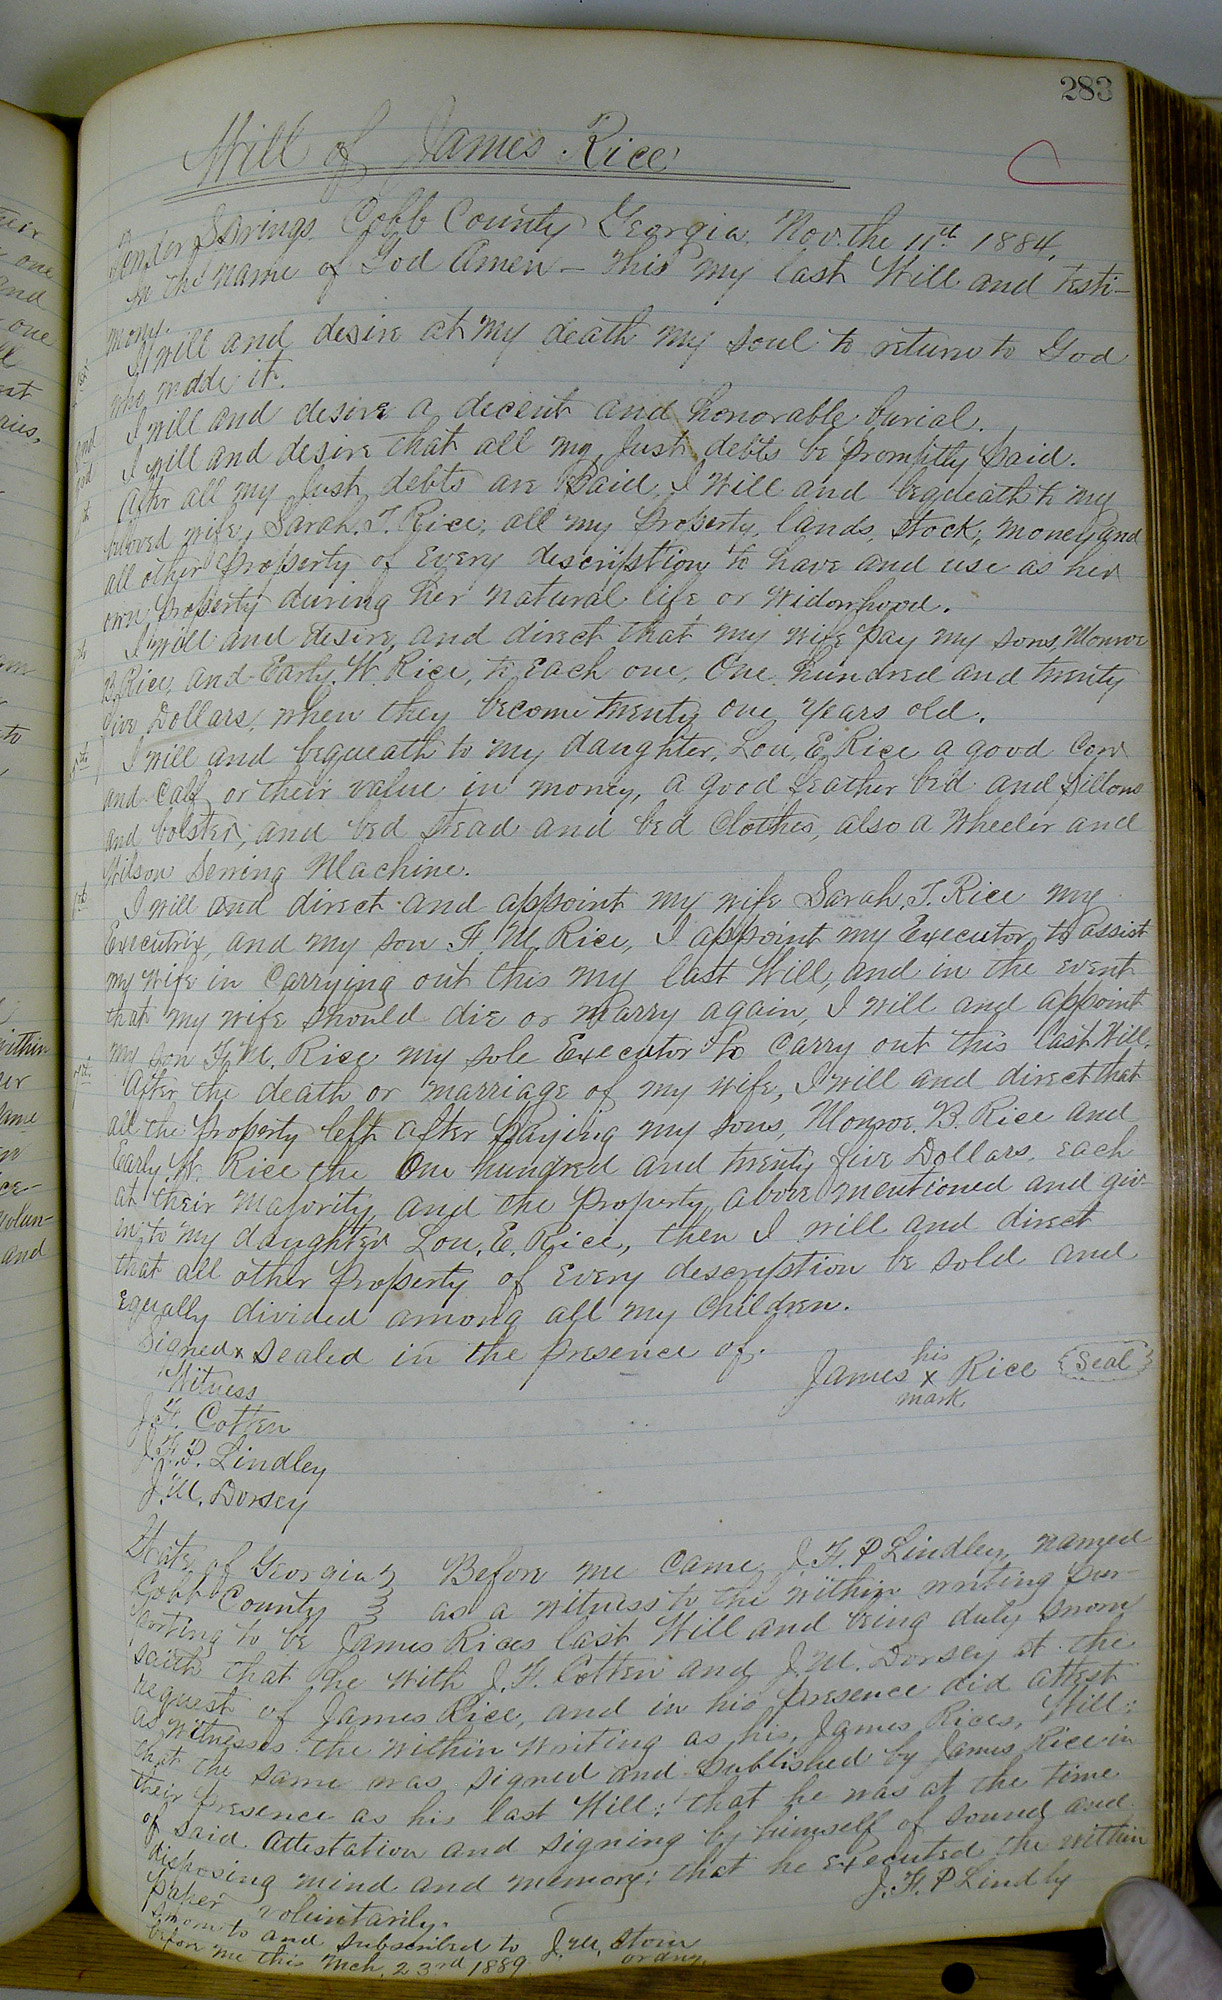 283
Will of James Rice
Powder Springs Cobb County Georgia, Nov. the 11th 1884.
In the name of God Amen - this my last Will and Testi-
mony.
I will and desire at my death my soul to return to God
who made it.
2nd I will and desire a decent and honorable burial.
3rd I will and desire that all my Just debts be promptly paid.
th After all my Just debts are paid, I will and beqdeath to my
beloved wife, Sarah. T. Rice, all my property, lands, stock, money and
all other property of every description to have and use as her
own property during her natural life or widowhood.
th I will and desire, and direct that my wife pay my sons, Monroe
B. Rice, and Early W. Rice, to each one, One hundred and twenty
five Dollars, when they become twenty one years old.
th I will and bequeath to my daughter, Lou, E, Rice a good Cow
and Calf or their value in money, a good feather bed and pillows
and bolster, and bed stead and bed Clothes, also a Wheeler and
Wilson Sewing Machine.
th I will and direct and appoint my wife Sarah. T. Rice my
Executrix, and my son F. M. Rice, I appoint my Executor to assist
my wife in Carrying out this my last Will, and in the event
that my wife should die or marry again, I will and appoint
my son F. M. Rice my sole Executor to Carry out this last Will.
After the death or marriage of my wife, I will and direct that
all the property left after paying my sons, Monroe. B. Rice and
Early. W. Rice the One hundred and twenty five Dollars each
at their majority and the property above mentioned and giv-
en to my daughter Lou. E. Rice, then I will and direct
that all other property of every description be sold and
equally divided among all my Children.
Signed x Sealed in the presence of.
his
James x Rice (Seal)
mark
Witness
J. F. Cotten
J. F. P. Lindley
J. M. Dorsey
State of Georgia } Before me came J. F. P Lindley, named
Cobb County } as a witness to the within writing pur-
porting to be James Rices last Will and being duly sworn
saith that he with J. F. Cotten and J. M. Dorsey at the
request of James Rice, and in his presence did attest
as witnesses the within writing as his, James Rices, Will:
that the same was signed and published by James Rice in
their presence as his last Will: that he was at the time
of said Attestation and signing by himself of sound and
disposing mind and memory: that he executed the within
paper voluntarily. J. F. P Lindly
Sworn to and subscribed to J. M. Stone
before me this Mch. 23rd 1889. ordny.